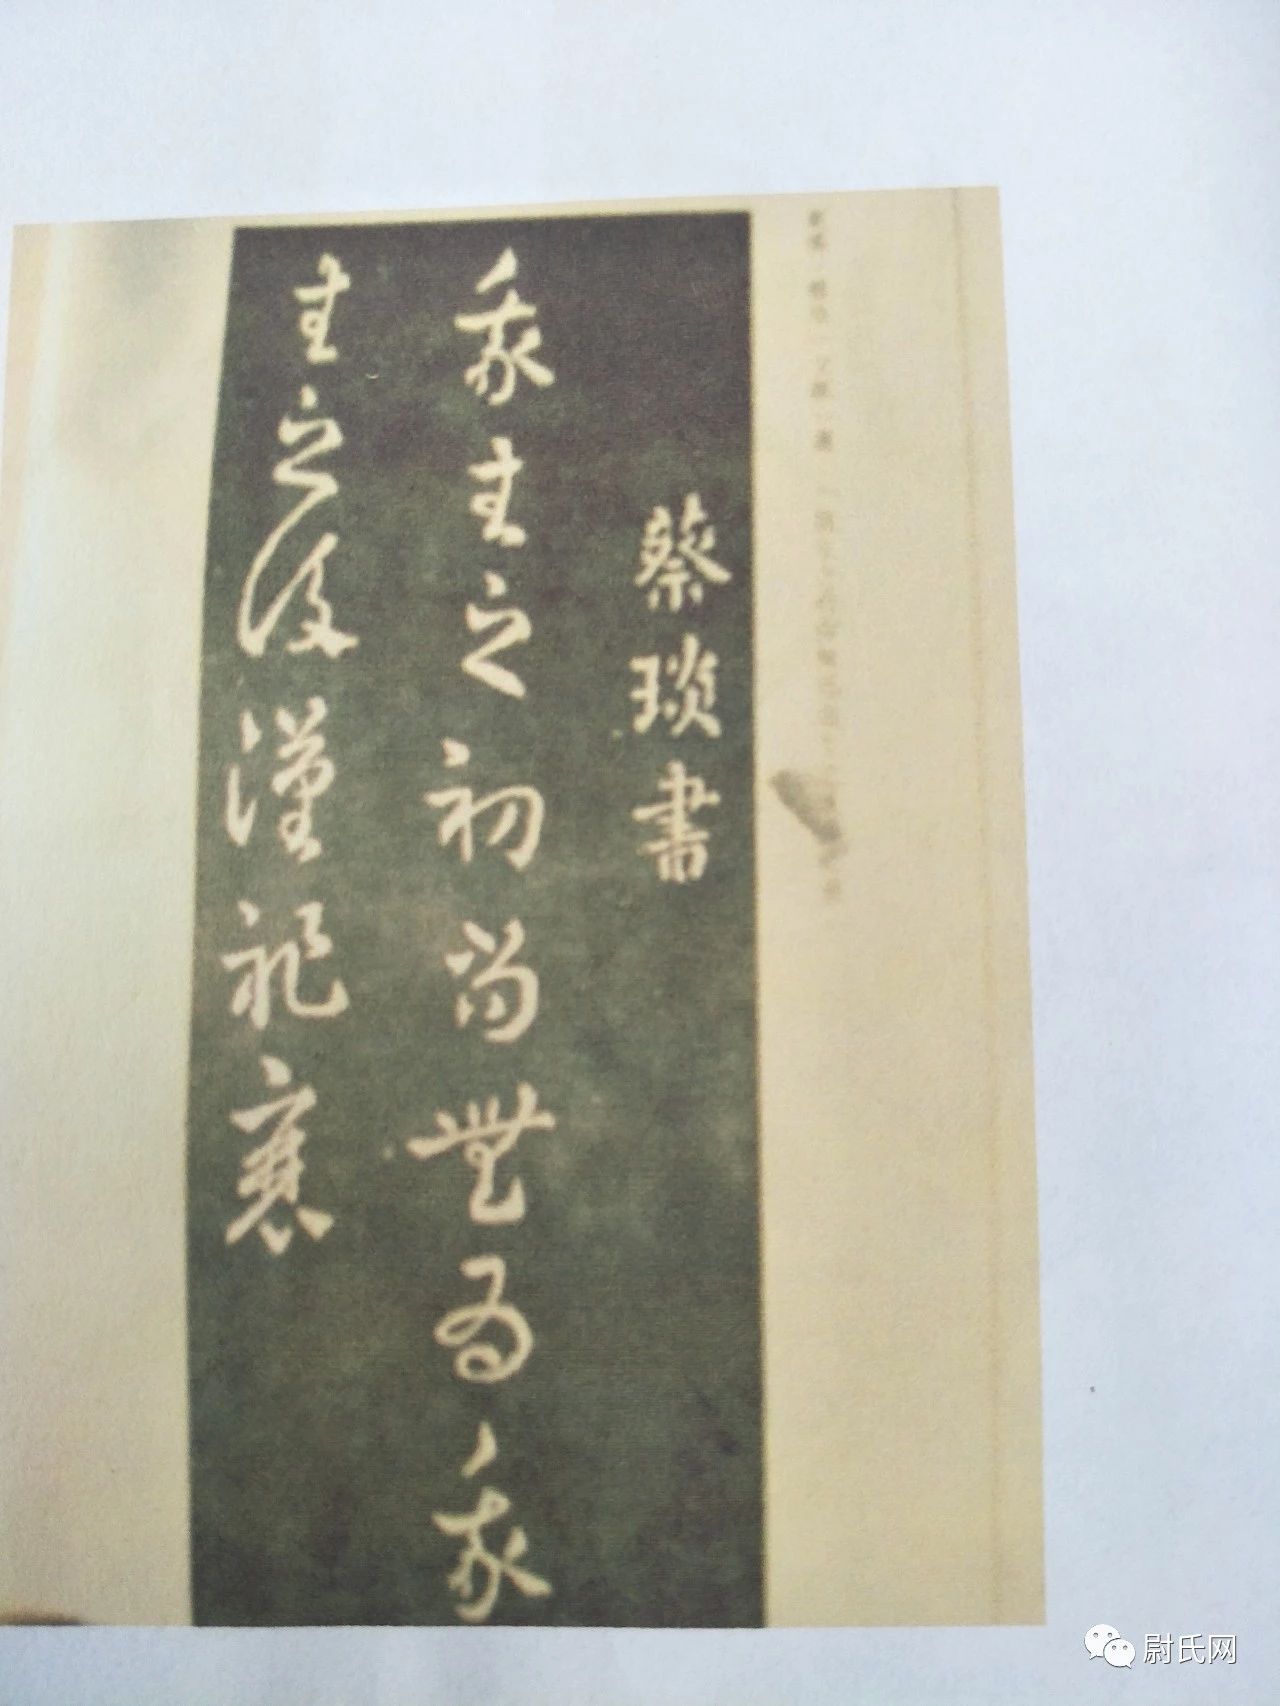 蔡琰書
我生之初尚無為我
生之後漢祚衰
尉氏网